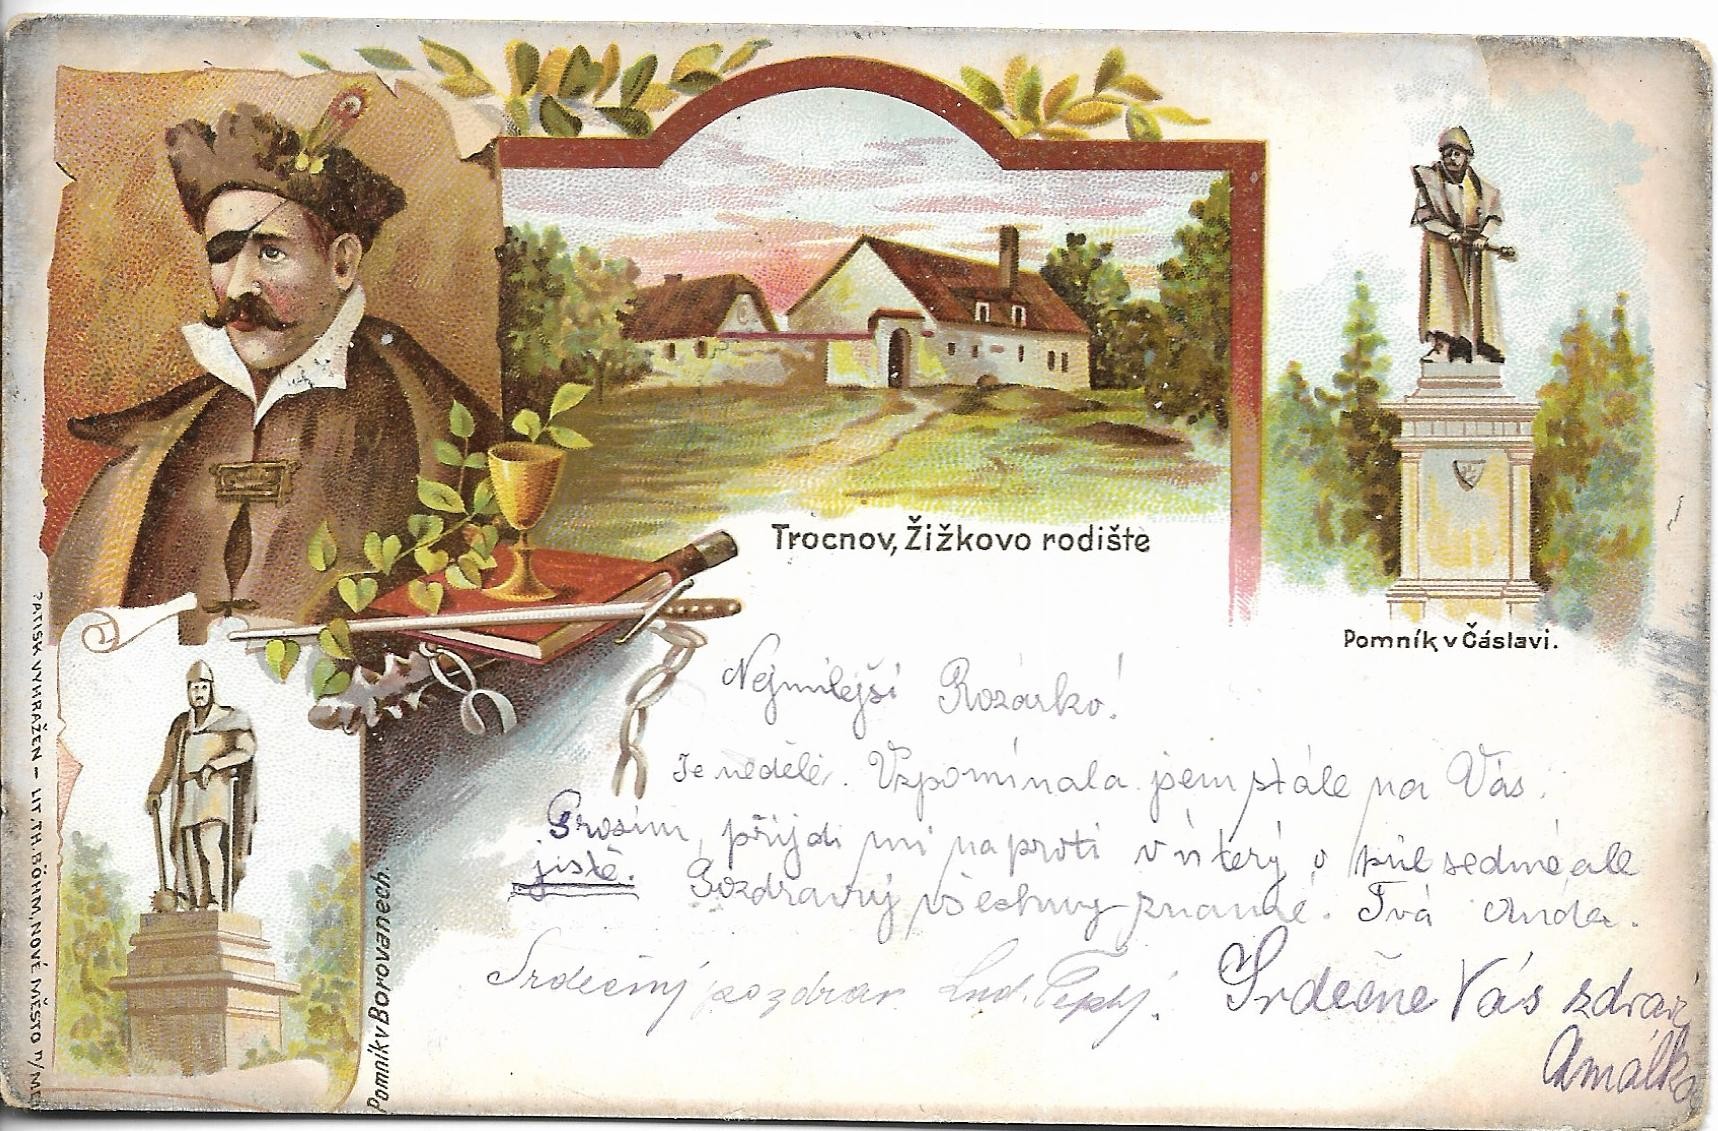 Trocnov, Žižkovo rodiště
Pomník v Čáslavi.
Nejmilejší Rozárko!
Je neděle. Vzpomínala jsem stále na Vás.
Prosím, přijdi mi naproti v úterý o půl sedmé ale
jistě. Pozdravuj všechny známé. Tvá Anda.
Srdečný pozdrav Lud. Teplý.
Srdečně Vás zdraví
Amálka
Pomník v Borovanech.
PATISK VYHRAŽEN – LIT. TH. BÖHM, NOVÉ MĚSTO n/MET